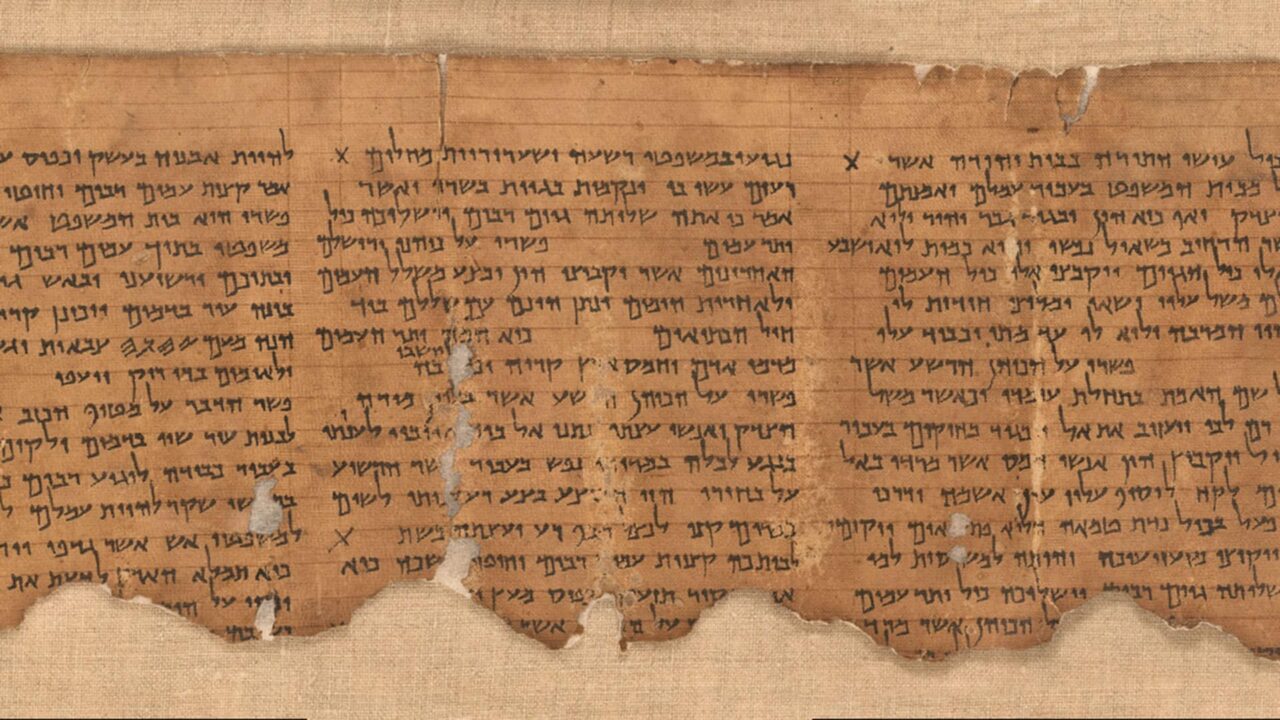 עושי התורה בבית יהודה אשר X
מבית המשפט בעבור עמלם ואמנתם
הצדק ואף כיא הון יבגוד גבר יהיר ולוא
הרחיב כשאול נפשו והוא כמות לוא ישבע
כול הגוים ויקבצו אלו כול העמים
משל עליו ישאו ומליצי חידות לו
המרבה ולוא לו עד מתי יכביד עלו
פשרו על הכוהן הרשע אשר
שם האמת בתחלת עומדו וכאשר משל
רם לבו ויעזוב את אל ויבגוד בחוקים בעבור
ויקבוץ הון אנשי חמס אשר מרדו באל
לקח לוסיף עליו עון אשמה ודרכי
פעל בכול נדת טמאה הלוא ויקומו
ויקיצו מזעזיעיכה והייתה למשיסות למו
שלותה גוים רבים וישלוכה כול יתר עמים
הכוהן אשר
נגועו במשפטי רשעה ושערוריות מחלים X
רעים עשו בו ונקמות בגוית בשרו ואשר
אמר כי אתה שלותה גוים רבים וישלוכה כול
יתר עמים פשרו על כוהני ירושלם
האחרונים אשר יקבוצו הון ובצע משלל העמים
ולאחרית הימים ינתן הונם עם שללם ביד
חיל הכתיאים כיא המה יתר העמים
מדמי אדם וחמס ארץ קריה יושבי בה
פשרו על הכוהן הרשע אשר מורה
הצדק ואנשי עצתו נתנו אל ביד אויביו לענתו
בנגע לכלה במרורי נפש בעבור אשר הרשיע
על בחירו הוי הבוצע בצע רע לביתו לשום
במרום קנו לנצל מכף רע יעצתה בשת X
לביתכה קצוות עמים רבים וחוטי נפשכה כיא
קיר תזעק וכפיס מעץ
להיות אבניה בעשק וכפיס
אמר קצות עמים רבים וחוטי
פשרו הוא בית המשפט
משפטו בתוך עמים רבים
ובתוכם ירשיענו ובאש
בונה עיר בדמים ויכונן
הנה מעם 𐤉𐤄𐤅𐤄 צבאות
ולאומים בדי ריק ייעפו
פשר הדבר על מטיף הכזב
לבנות עיר שוו בדמים ולקים
בעבור כבודה לוגיע רבים
שקר להיות עמלם
למשפטי אש אשר גדפו
כיא תמלא הארץ לדעת את